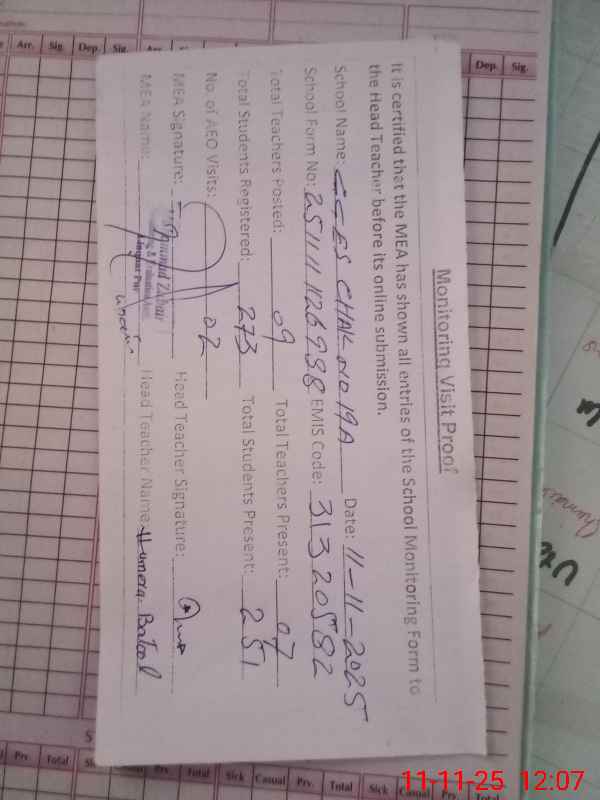 Monitoring Visit Proof
It is certified that the MEA has shown all entries of the School Monitoring Form to
the Head Teacher before its online submission.
School Name: GGES CHAK NO 19A Date: 11-11-2025
School Form No: EMIS Code: 31320582
Total Teachers Posted: 09 Total Teachers Present: 07
Total Students Registered: 273 Total Students Present: 251
No. of AEO Visits: 02
MEA Signature: Head Teacher Signature:
MEA Name: Head Teacher Name: Humera Batool
Arr. Sig. Dep. Sig.
Dep. Sig.
Prv. Total Sick Casual Prv. Total Sick Casual Prv. Total
11-11-25 12:07